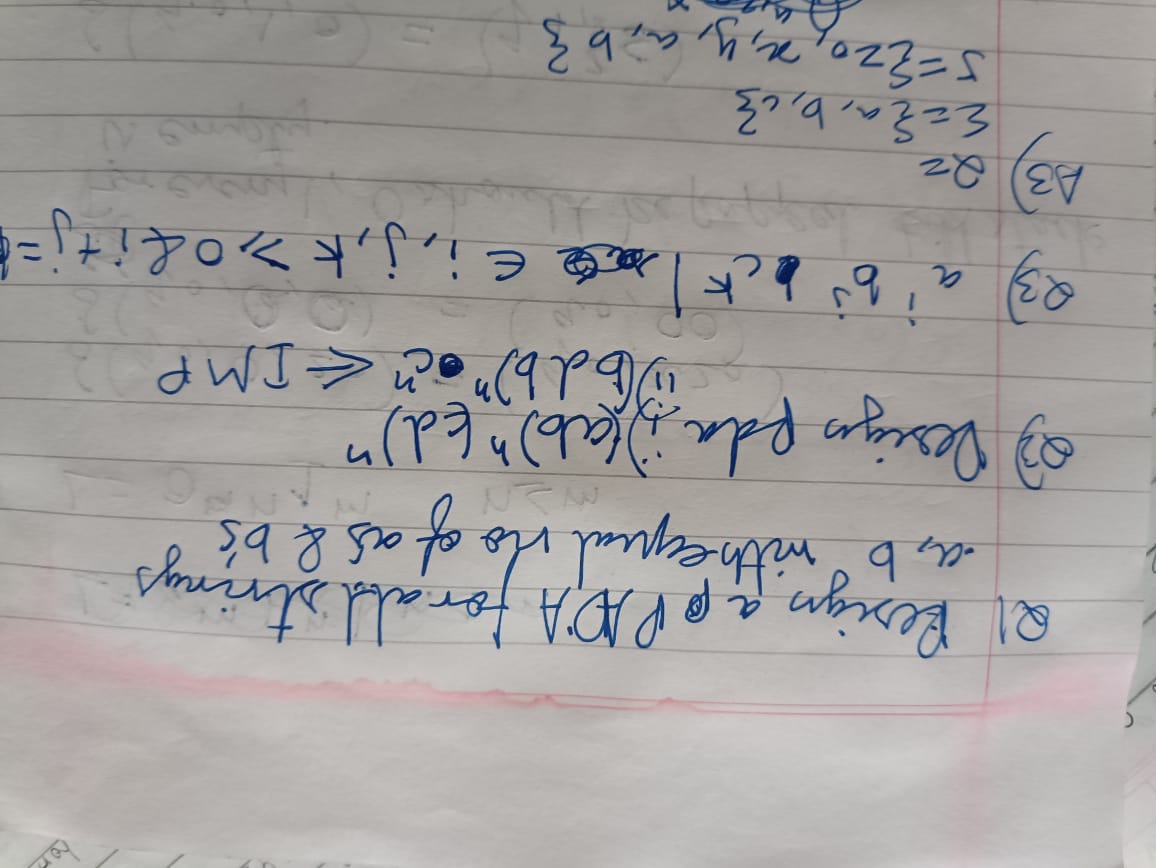 Q1 Design a PDA for all strings
a, b with equal no of as & b's
Q2) Design pda i) (ab)ⁿ (cd)ⁿ
ii) (bdb)ⁿ cⁿ ⇐ IMP
Q3) aⁱ bʲ cᵏ | ∈ i, j, k ≥ 0 & i+j=
A3) Q=
Σ = {a, b, c}
S = {z₀, x, y, a, b}